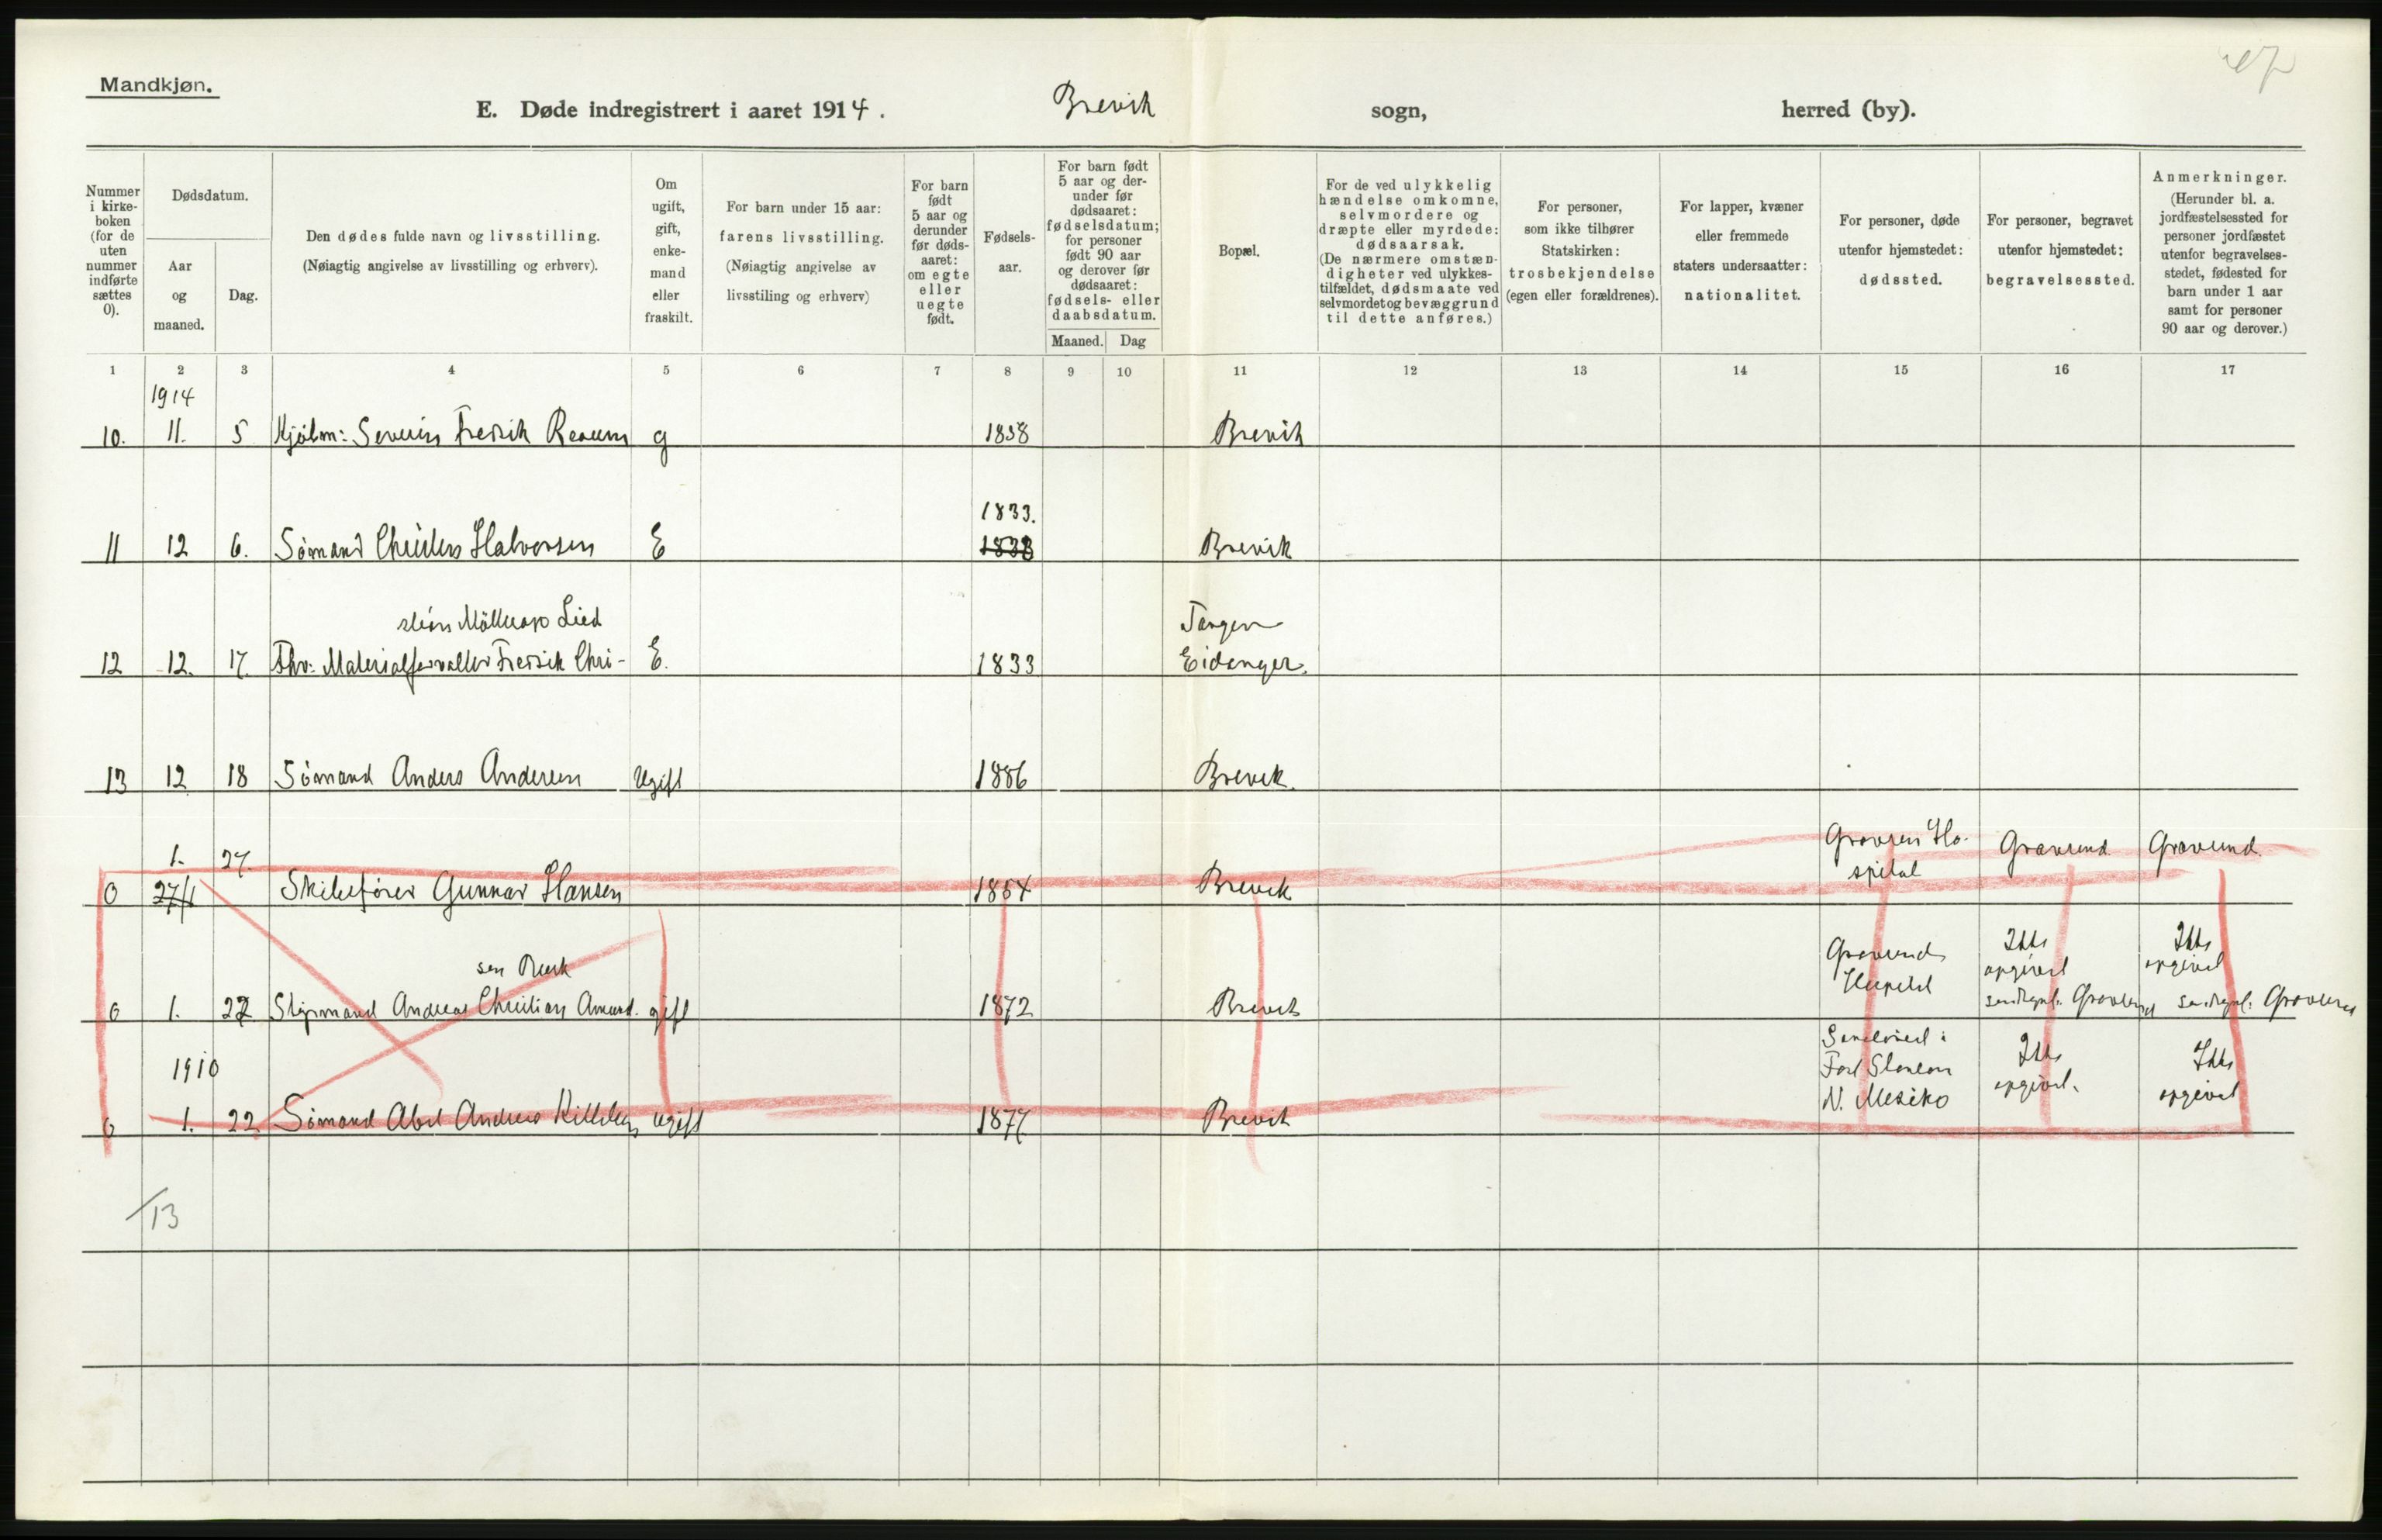 Mandkjøn.
E. Døde indregistrert i aaret 1914. Brevik sogn, herred (by).
Nummer i kirke-boken (for de uten nummer indførte sættes 0).
Dødsdatum.
Aar og maaned.
Dag.
Den dødes fulde navn og livsstilling.
(Nøiagtig angivelse av livsstilling og erhverv).
Om ugift, gift, enke-mand eller fraskilt.
For barn under 15 aar: farens livsstilling.
(Nøiagtig angivelse av livsstiling og erhverv)
For barn født 5 aar og derunder før døds-aaret: om egte eller uegte født.
Fødsels-aar.
For barn født 5 aar og der-under før dødsaaret: fødselsdatum; for personer født 90 aar og derover før dødsaaret: fødsels- eller daabsdatum.
Maaned. Dag
Bopæl.
For de ved ulykkelig hændelse omkomne, selvmordere og dræpte eller myrdede: dødsaarsak.
(De nærmere omstæn-digheter ved ulykkes-tilfældet, dødsmaate ved selvmordet og bevæggrund til dette anføres.)
For personer, som ikke tilhører Statskirken: trosbekjendelse (egen eller forældrenes).
For lapper, kvæner eller fremmede staters undersaatter: nationalitet.
For personer, døde utenfor hjemstedet: dødssted.
For personer, begravet utenfor hjemstedet: begravelsessted.
Anmerkninger.
(Herunder bl. a. jordfæstelsessted for personer jordfæstet utenfor begravelses-stedet, fødested for barn under 1 aar samt for personer 90 aar og derover.)
1 2 3 4 5 6 7 8 9 10 11 12 13 14 15 16 17
1914
10. 11. 5 Kjøbm: Severin Fredrik g 1838 Brevik
1833.
11 12 6. Sømand Halvorsen E 1838 Brevik
Tangen
12 12. 17. Fhv: Materialforvalter Fredrik Chri- E. 1833 Eidanger.
13 12 18 Sømand Anders Andersen Ugift 1886 Brevik.
1. 27. Gravesend Gravesend
0 27/1 Skibsfører Gunnar Hansen 1864 Brevik spital
Gravesend Ikke Ikke
Hospital opgivet opgivet
0 1. 22 Andreas Christian gift 1872 Brevik
1910
Ikke Ikke
opgivet. opgivet
0 1. 22 Sømand Abel Andreas ugift 1877 Brevik N. Mexiko
/13